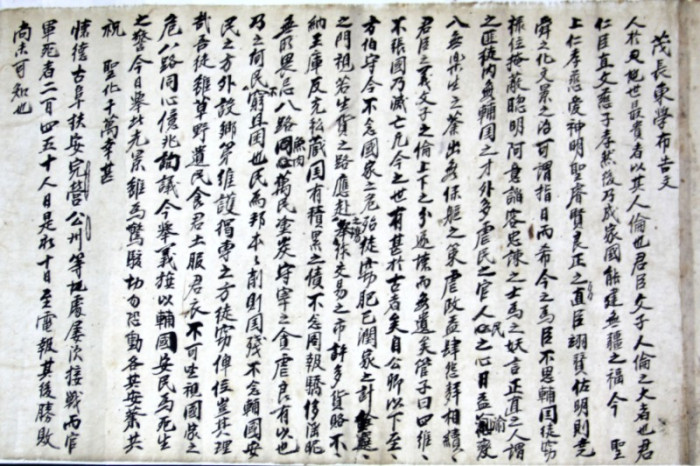 茂長東學布告文
人於 世最貴者以其人倫也君臣父子人倫之大者也君
仁臣直父慈子孝然後乃成家國能逮無疆之福今 聖
上仁孝慈愛神明聖睿賢良正之直臣翊贊佐明則堯
舜之化文景之治可謂指日而希今之爲臣不思輔國徒窃
祿位掩蔽聰明阿意諂容忠諫之士爲之妖言正直之人謂
之匪徒內無輔國之才外多虐民之官人民之心日益渝變
入無樂生之業出無保軀之策虐政益肆怨聲相續々
君臣之義父子之倫上下之分遂壞而無遺矣管子曰四維々
不張國乃滅亡凡今之世有甚於古者矣自公卿以下至々
方伯守令不念國家之危殆徒窃肥己潤家之計
之門視若生貨之路應 交易之市許多貨賂不々
納王庫反充私藏國有積累之債不念圖報驕侈淫昵
無所畏忌八路魚肉萬民塗炭守宰之貪虐良有以也
乃之何民不窮且困也民爲邦本々削則國殘不念輔國安
民之方外設鄕第惟 獨專之方徒窃俸位豈其理
哉吾徒雖草野遺民食君土服君衣不可坐視國家之
危八路同心億兆詢議今擧義旗以輔國安民爲死生
之誓今日擧此光景雖爲驚駭切勿恐動各其安業共
祝 聖化千萬幸甚
懷德古阜扶安完營公州等地處屢次接戰而官
軍死者二百四五十人日是 十日至電報其後勝敗
尙未可知也